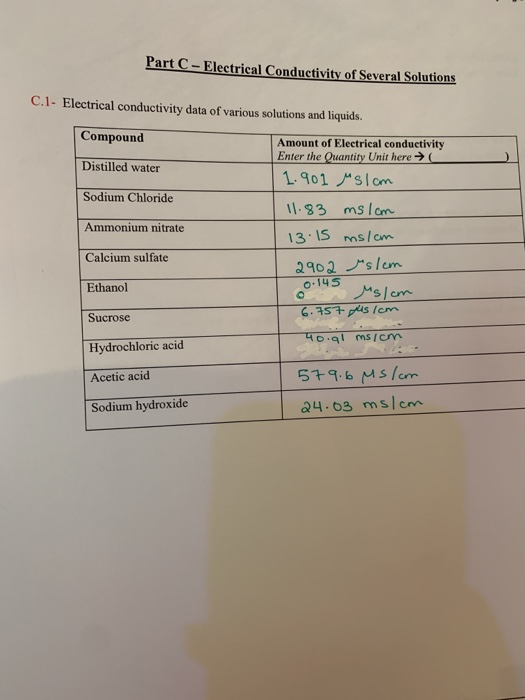 Part C – Electrical Conductivity of Several Solutions
C.1- Electrical conductivity data of various solutions and liquids.
Compound
Amount of Electrical conductivity
Enter the Quantity Unit here → (__________)
Distilled water
1.901 μs/cm
Sodium Chloride
11.83 ms/cm
Ammonium nitrate
13.15 ms/cm
Calcium sulfate
2902 μs/cm
Ethanol
0.145 μs/cm
Sucrose
6.757 μs/cm
Hydrochloric acid
40.91 ms/cm
Acetic acid
579.6 μs/cm
Sodium hydroxide
24.03 ms/cm